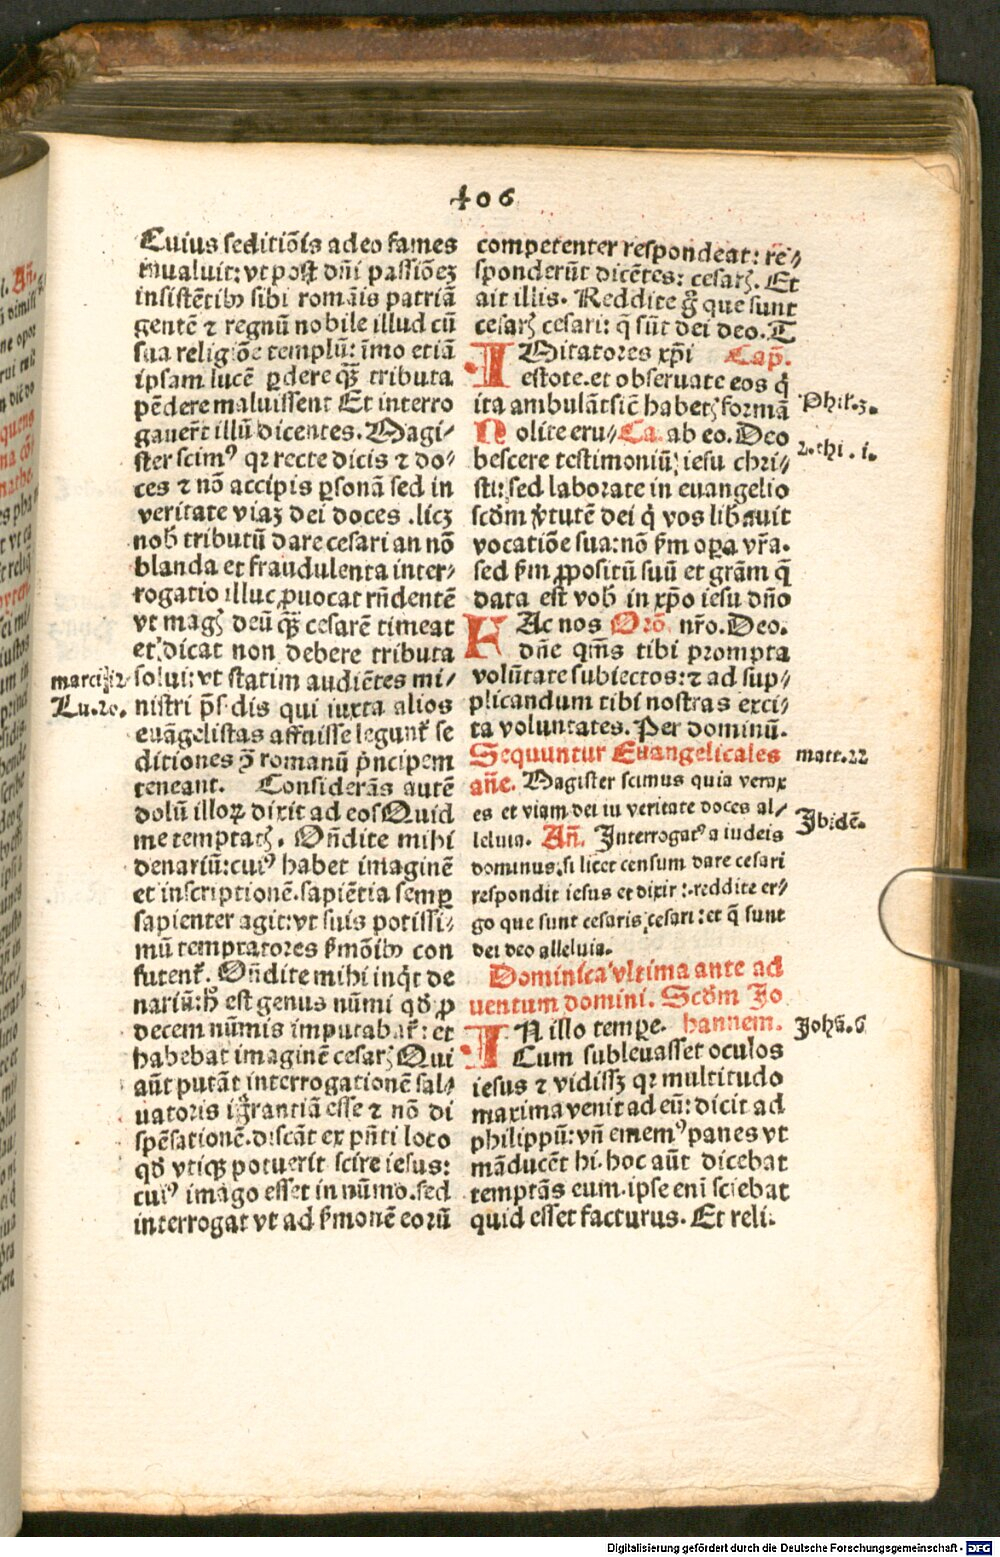 406
Cuius seditiōis adeo fames
inualuit: vt post dñi passiōeꝫ
insistētibꝰ sibi romāis patriā
gentē ⁊ regnū nobile illud cū
sua religiōe templū: īmo etiā
ipsam lucē ꝑdere qꝫ̄ tributa
pēdere maluissent Et interro
gauer̄t illū dicentes. Magi/
ster scimꝰ qꝛ recte dicis ⁊ do/
ces ⁊ nō accipis ꝑsonā sed in
veritate viaꝫ dei doces .licꝫ
nob̄ tributū dare cesari an nō
blanda et fraudulenta inter/
rogatio illuc ꝓuocat rñdentē
vt magꝭ deū qꝫ̄ cesarē timeat
et dicat non debere tributa
solui: vt statim audiētes mi/
nistri p̄sdis qui iuxta alios
euāgelistas affuisse legunt̄ se
ditiones ꝯ̄ romanū pͥncipem
teneant. Considerās autē
dolū illoꝝ dixit ad eos Quid
me temptatꝭ. Oñdite mihi
denariū: cuiꝰ habet imaginē
et inscriptionē. sapiētia semꝑ
sapienter agit: vt suis potissi/
mū temptatores ẜmōibꝰ con
futent̄. Oñdite mihi inqͥt de
nariū: h̄ est genus nūmi qd̄ ꝓ
decem nūmis imputabat̄: et
habebat imaginē cesarꝭ Qui
aūt putāt interrogationē sal/
uatoris igͦrantiā esse ⁊ nō di
spēsationē. discāt ex pñti loco
qd̄ vtiqꝫ potuerit scire iesus:
cuiꝰ imago esset in nūmo. sed
interrogat vt ad ẜmonē eorū
marci.12
Lu.20.
competenter respondeat: re/
sponderūt dicētes: cesarꝭ. Et
ait illis. Reddite gͦ que sunt
cesarꝭ cesari: q̄ sūt dei deo. T
IMitatores xp̄i Cap.
estote. et obseruate eos qͥ
ita ambulāt sic̄ habetꝭ formā
Nolite eru/ Ca. ab eo. Deo
bescere testimoniū iesu chri/
sti: sed laborate in euangelio
scd̄m v̓tutē dei qͥ vos libauit
vocatiōe sua: nō ẜm oꝑa vr̄a.
sed ẜm ꝓpositū suū et grām q̄
data est vob̄ in xp̄o iesu dño
FAc nos Orō. nr̄o. Deo.
dñe qm̄s tibi prompta
volūtate subiectos: ⁊ ad sup/
plicandum tibi nostras exci/
ta voluntates. Per dominū.
Sequuntur Euangelicales
añe. Magister scimus quia verax
es et viam dei in veritate doces al/
leluia. Añ. Interrogatꝰ a iudeis
dominus. si licet censum dare cesari
respondit iesus et dixit: reddite er/
go que sunt cesaris cesari: et q̄ sunt
dei deo alleluia.
Dominica vltima ante ad
uentum domini. Scd̄m Jo
IN illo tempe. hannem.
Cum subleuasset oculos
iesus ⁊ vidissꝫ qꝛ multitudo
maxima venit ad eū: dicit ad
philippū: vñ ememꝰ panes vt
māducēt hi. hoc aūt dicebat
temptās eum. ipse eni sciebat
quid esset facturus. Et reli.
Phil.3.
2.thi.i.
matt.22
Ibidē.
Johā.6
Digitalisierung gefördert durch die Deutsche Forschungsgemeinschaft - DFG